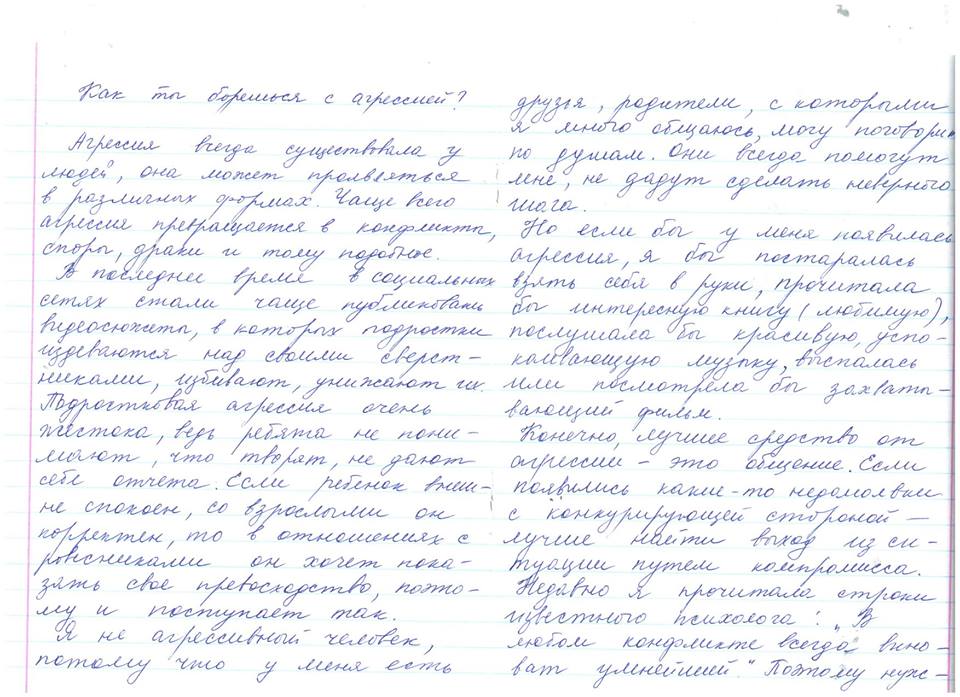 Как ты борешься с агрессией?
Агрессия всегда существовала у
людей, она может проявляться
в различных формах. Чаще всего
агрессия превращается в конфликты,
споры, драки и тому подобное.
В последнее время в социальных
сетях стали чаще публиковать
видеосюжеты, в которых подростки
издеваются над своими сверст-
никами, избивают, унижают их.
Подростковая агрессия очень
жестока, ведь ребята не пони-
мают, что творят, не дают
себе отчета. Если ребенок внеш-
не спокоен, со взрослыми он
корректен, то в отношениях с
ровесниками он хочет пока-
зать свое превосходство, поэто-
му и поступает так.
Я не агрессивный человек,
потому что у меня есть
друзья, родители, с которыми
я много общаюсь, могу поговори
по душам. Они всегда помогут
мне, не дадут сделать неверного
шага.
Но если бы у меня появилась
агрессия, я бы постаралась
взять себя в руки, прочитала
бы интересную книгу (любимую),
послушала бы красивую, успо-
каивающую музыку, выспалась
или посмотрела бы захваты-
вающий фильм.
Конечно, лучшее средство от
агрессии - это общение. Если
появились какие-то недомолвки
с конкурирующей стороной -
лучше найти выход из си-
туации путем компромисса.
Недавно я прочитала строки
известного психолога: "В
любом конфликте всегда вино-
ват умнейший." Поэтому нуж-